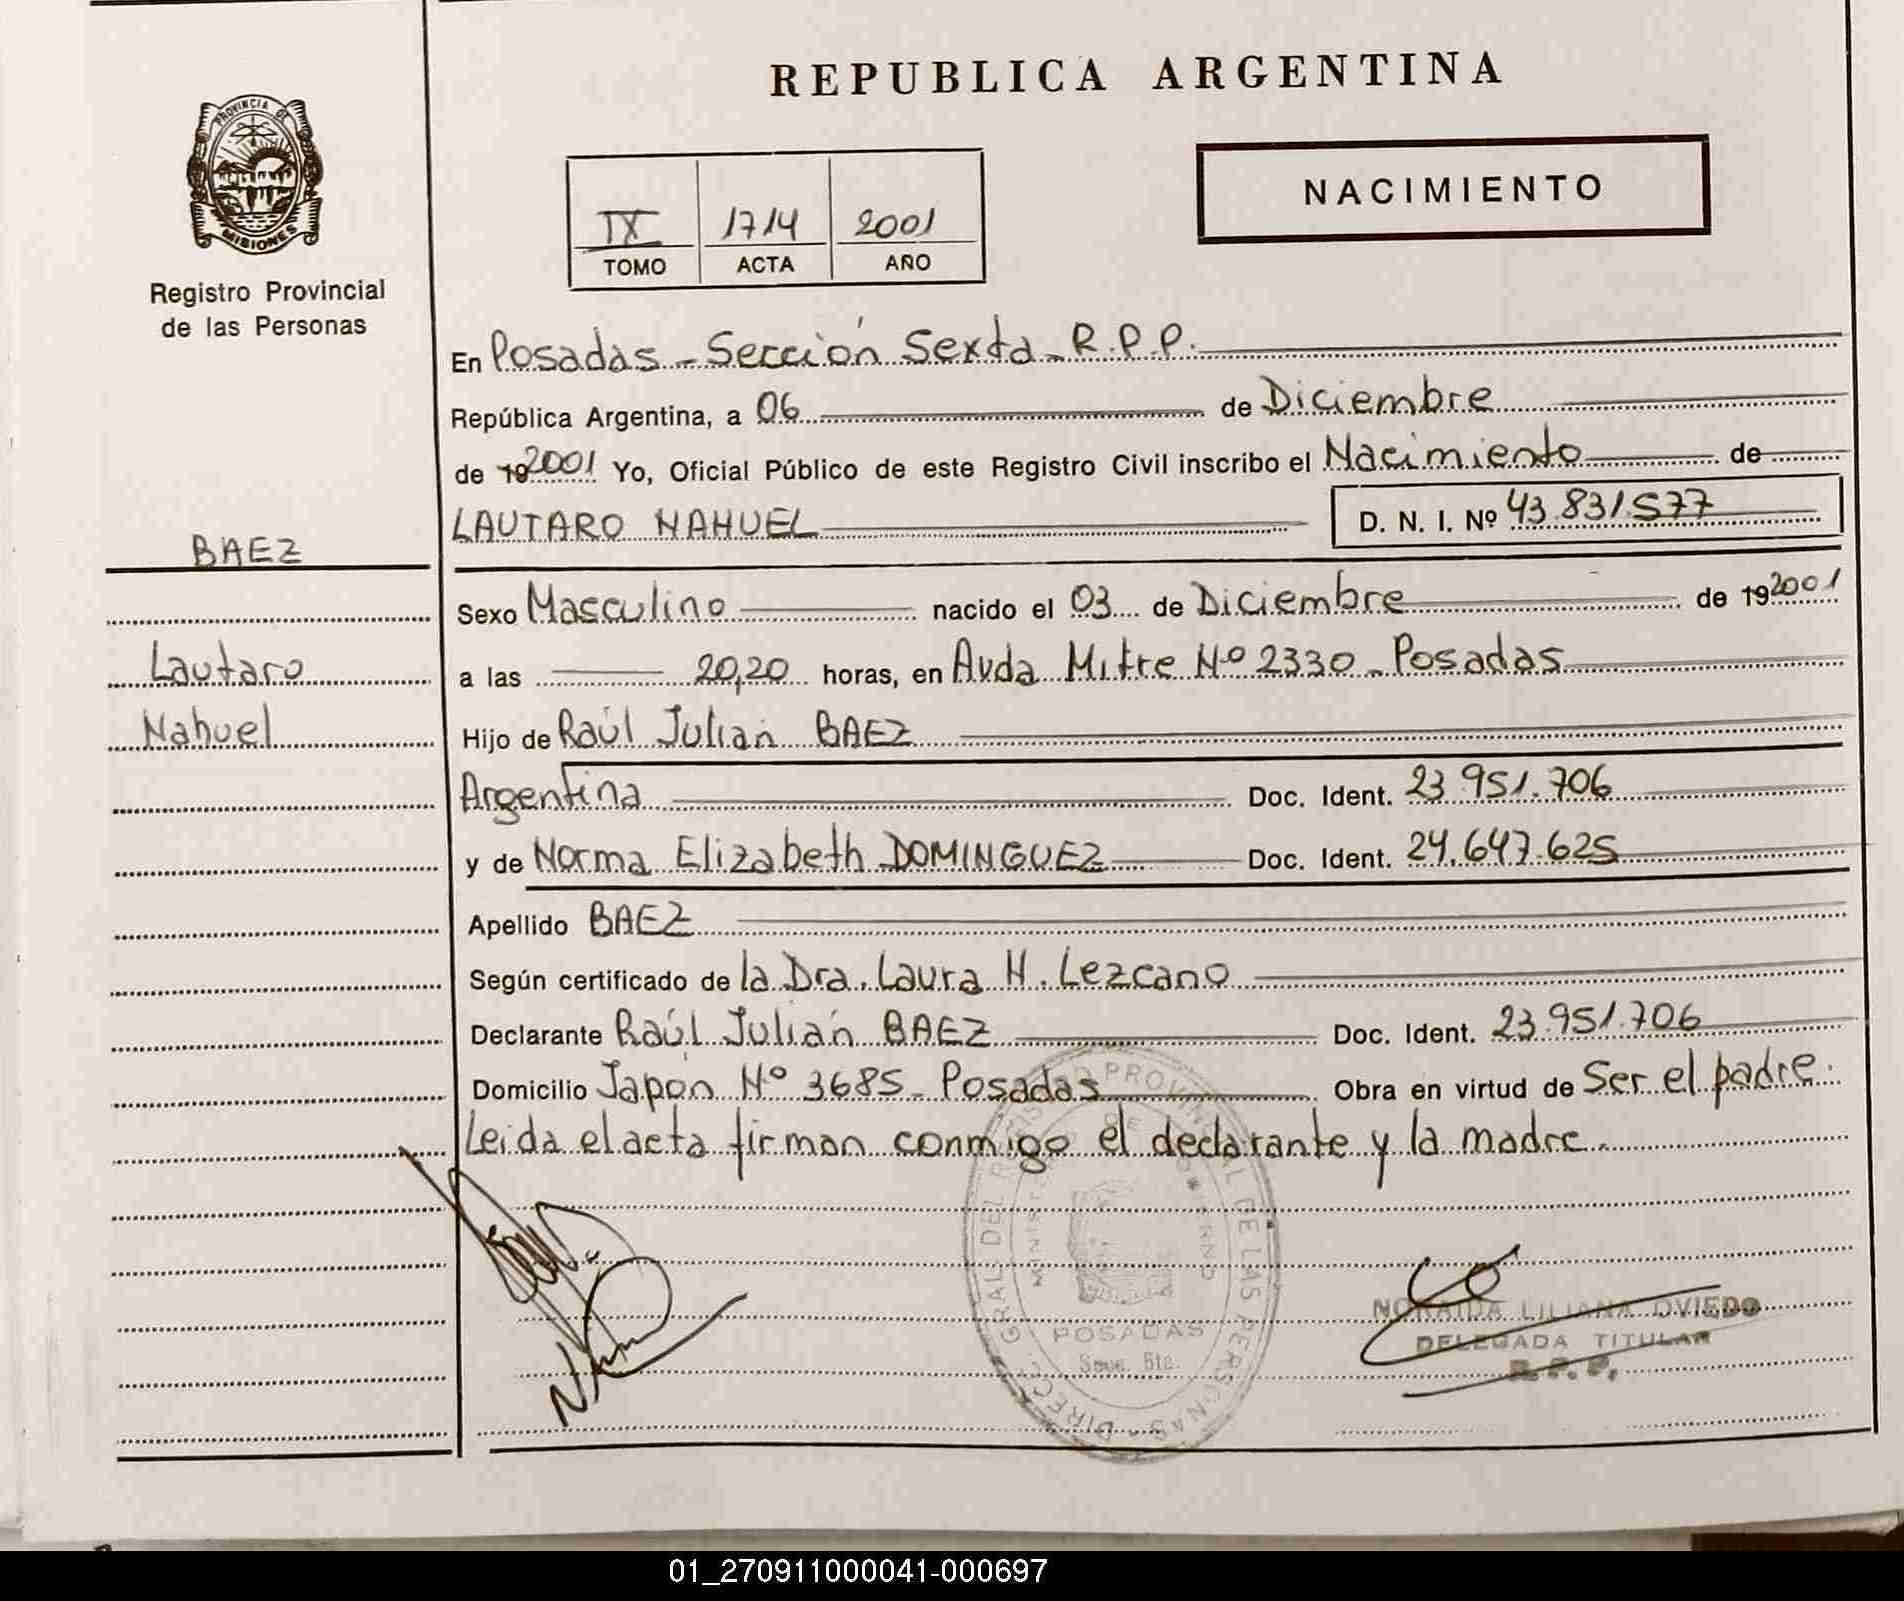 REPUBLICA ARGENTINA
PROVINCIA DE
MISIONES
Registro Provincial
de las Personas
NACIMIENTO
IX 1714 2001
TOMO ACTA AÑO
En Posadas - Sección Sexta - R.P.P.
República Argentina, a 06 de Diciembre
de 19 2001 Yo, Oficial Público de este Registro Civil inscribo el Nacimiento de
LAUTARO NAHUEL D. N. I. Nº 43.831.577
BAEZ
Lautaro
Nahuel
Sexo Masculino nacido el 03 de Diciembre de 19 2001
a las 20,20 horas, en Avda Mitre Nº 2330 - Posadas
Hijo de Raúl Julián BAEZ
Argentina Doc. Ident. 23.951.706
y de Norma Elizabeth DOMINGUEZ Doc. Ident. 24.647.625
Apellido BAEZ
Según certificado de la Dra. Laura H. Lezcano
Declarante Raúl Julián BAEZ Doc. Ident. 23.951.706
Domicilio Japón Nº 3685 - Posadas Obra en virtud de Ser el padre.
Leída el acta firman conmigo el declarante y la madre.
DIRECC. GRAL DEL REGISTRO PROVINCIAL DE LAS PERSONAS
POSADAS
NORAIDA LILIANA OVIEDO
DELEGADA TITULAR
R.P.P.
01_270911000041-000697